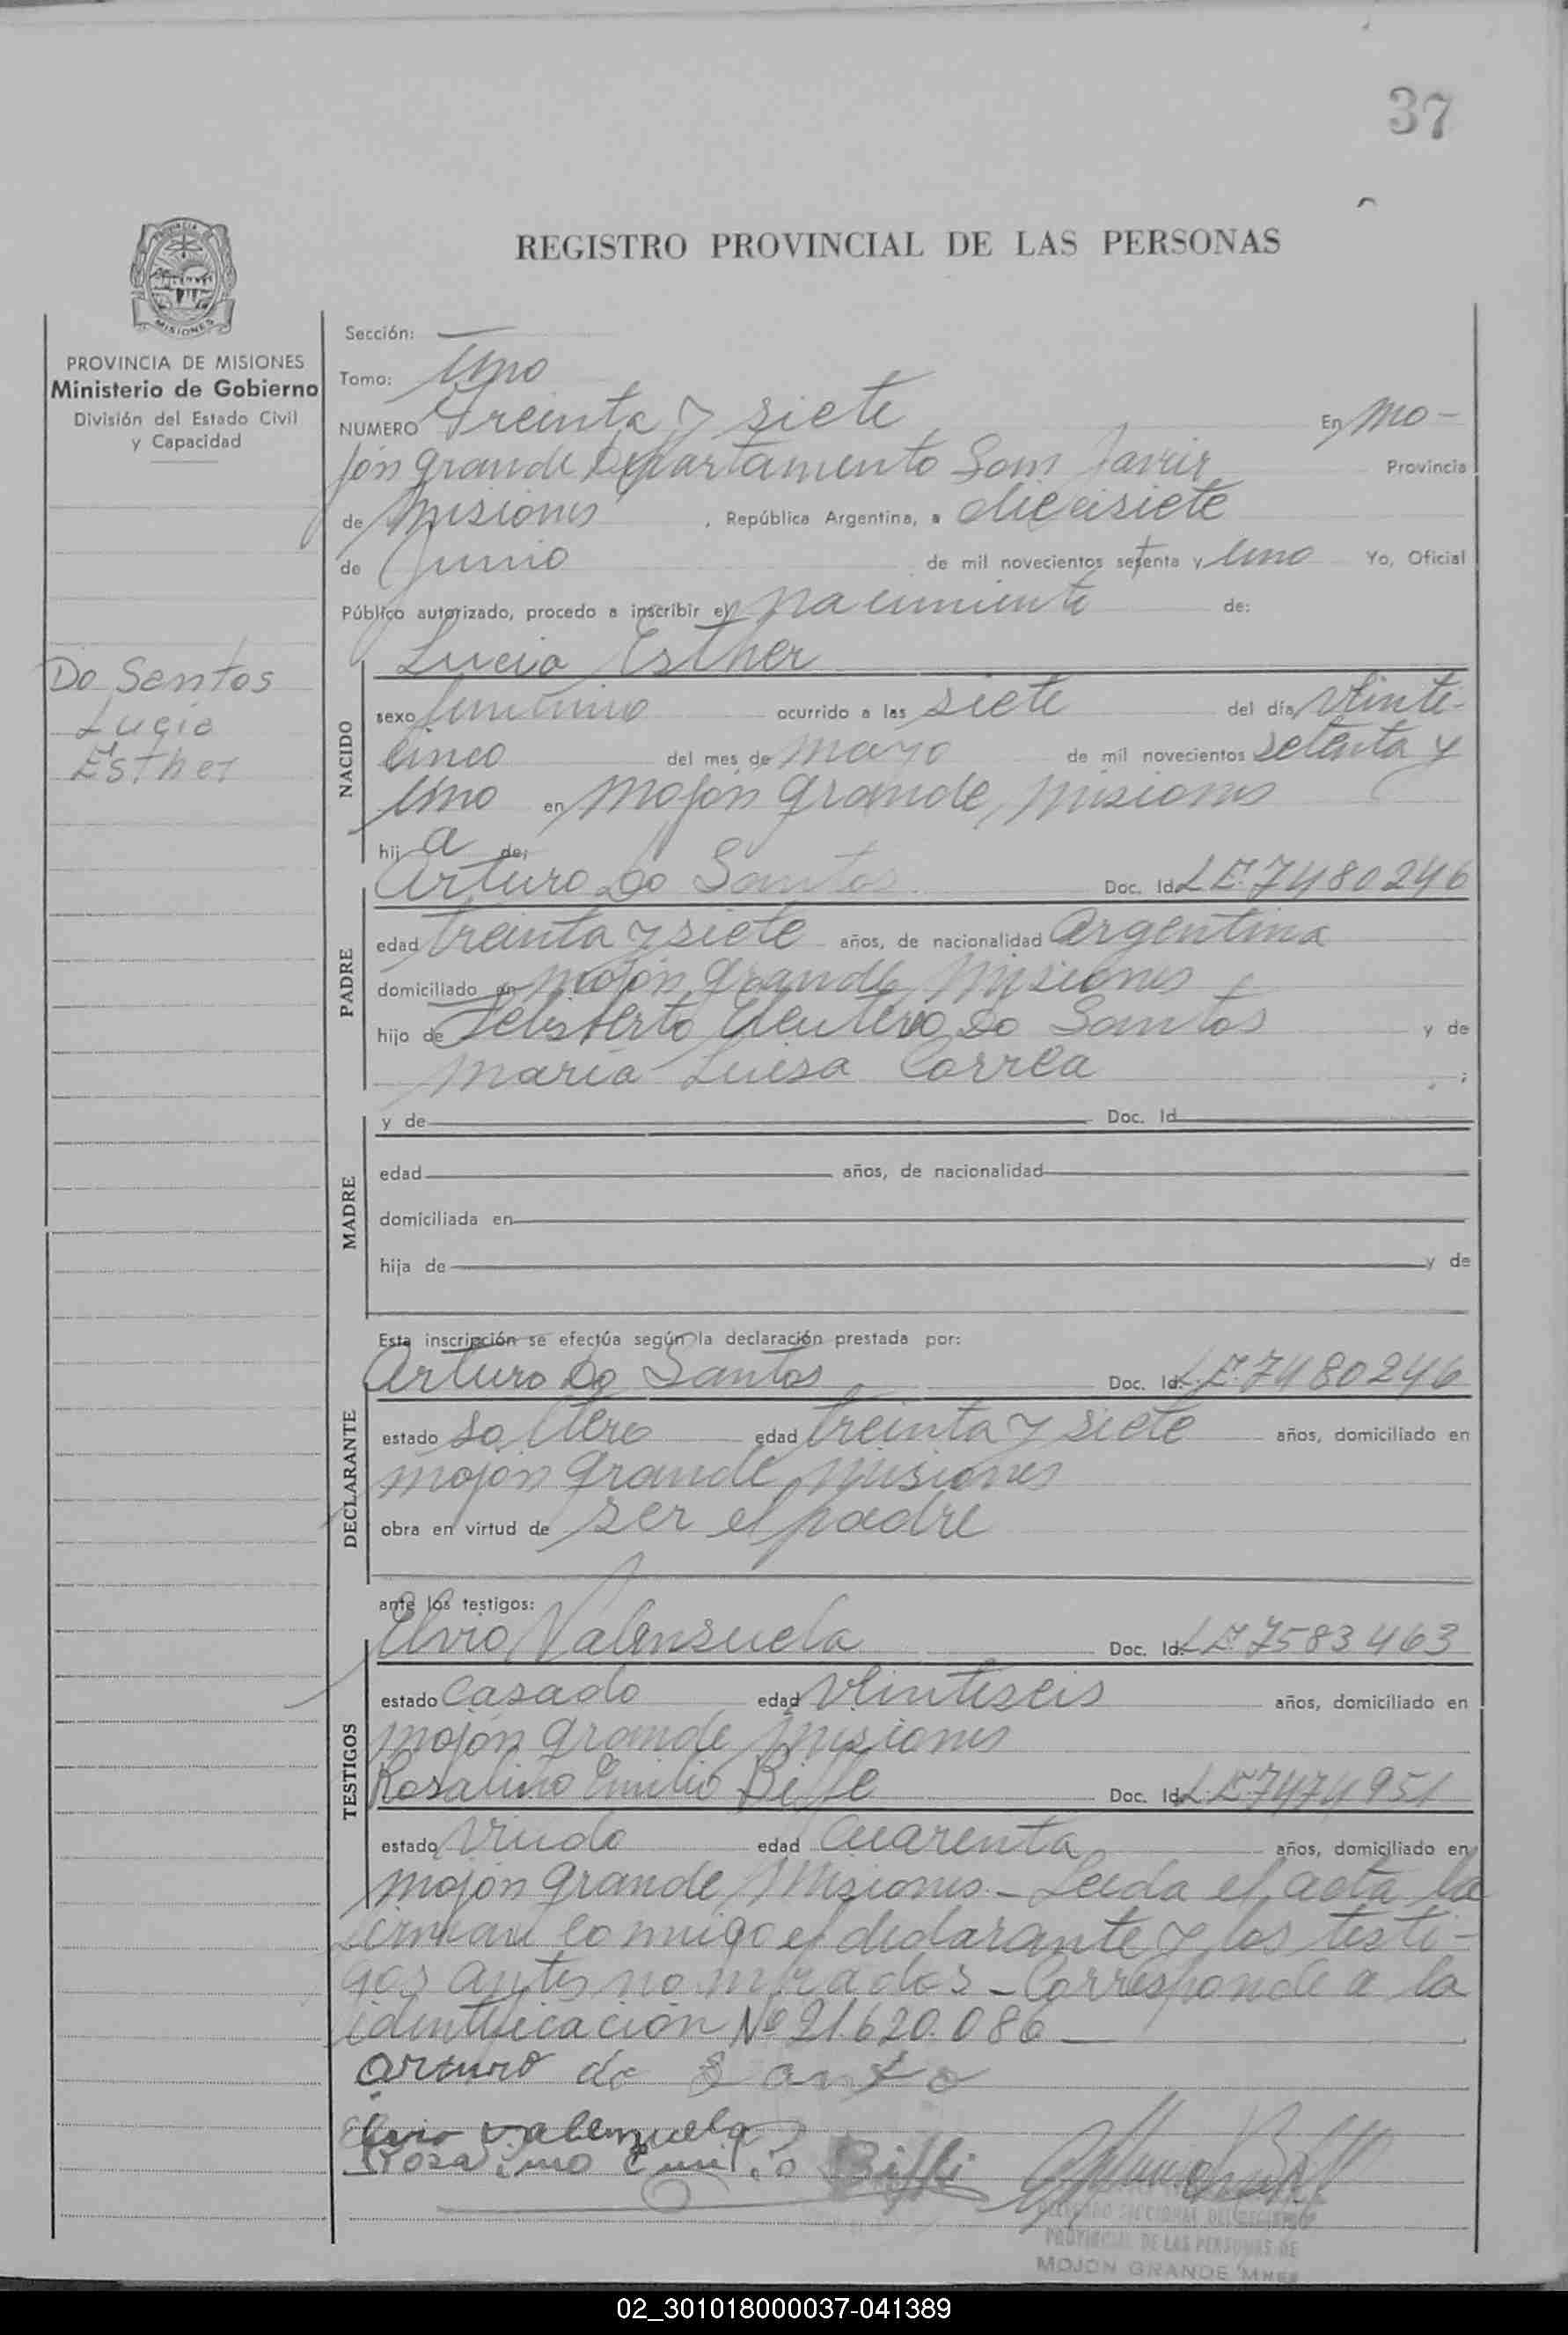 37
REGISTRO PROVINCIAL DE LAS PERSONAS
PROVINCIA DE MISIONES
Ministerio de Gobierno
División del Estado Civil
y Capacidad
Do Santos
Lucia
Esther
Sección: —
Tomo: Uno
NUMERO Treinta y siete En Mo-
jón grande Departamento San Javier Provincia
de Misiones, República Argentina, a diecisiete
de Junio de mil novecientos setenta y Uno Yo, Oficial
Público autorizado, procedo a inscribir el nacimiento de:
Lucia Esther
NACIDO
sexo femenino ocurrido a las siete del día Veinti-
cinco del mes de mayo de mil novecientos setenta y
Uno en Mojón grande, Misiones
hij a de:
Arturo Do Santos Doc. Id. L.E. 7480246
PADRE
edad treinta y siete años, de nacionalidad Argentina
domiciliado en Mojón grande Misiones
hijo de Eleuterio Do Santos y de
María Luisa Correa ;
MADRE
y de Doc. Id.
edad años, de nacionalidad
domiciliada en
hija de y de
Esta inscripción se efectúa según la declaración prestada por:
Arturo Do Santos Doc. Id. L.E. 7480246
DECLARANTE
estado soltero edad treinta y siete años, domiciliado en
Mojón grande, Misiones
obra en virtud de ser el padre
ante los testigos:
Elvio Valenzuela Doc. Id. L.E. 7583463
TESTIGOS
estado Casado edad Veintiseis años, domiciliado en
Mojón grande Misiones
Rosalino Emilio Doc. Id. L.E. 7474951
estado Viudo edad Cuarenta años, domiciliado en
Mojón grande, Misiones.- Leida el acta la
firman conmigo el declarante y los testi-
gos antes nombrados - Corresponde a la
identificación Nº 21.620.086
Arturo do Santo
Elvio Valenzuela
Rosalino Emilio Biffi
DELEGADO SECCIONAL DEL REGISTRO
PROVINCIAL DE LAS PERSONAS DE
MOJON GRANDE Mnes
02_301018000037-041389